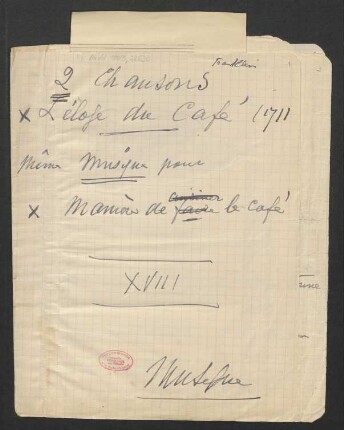 Franklin
2 Chansons
x L'éloge du Café (1711
Même Musique pour
x Manière de faire le café
XVIII
Musique